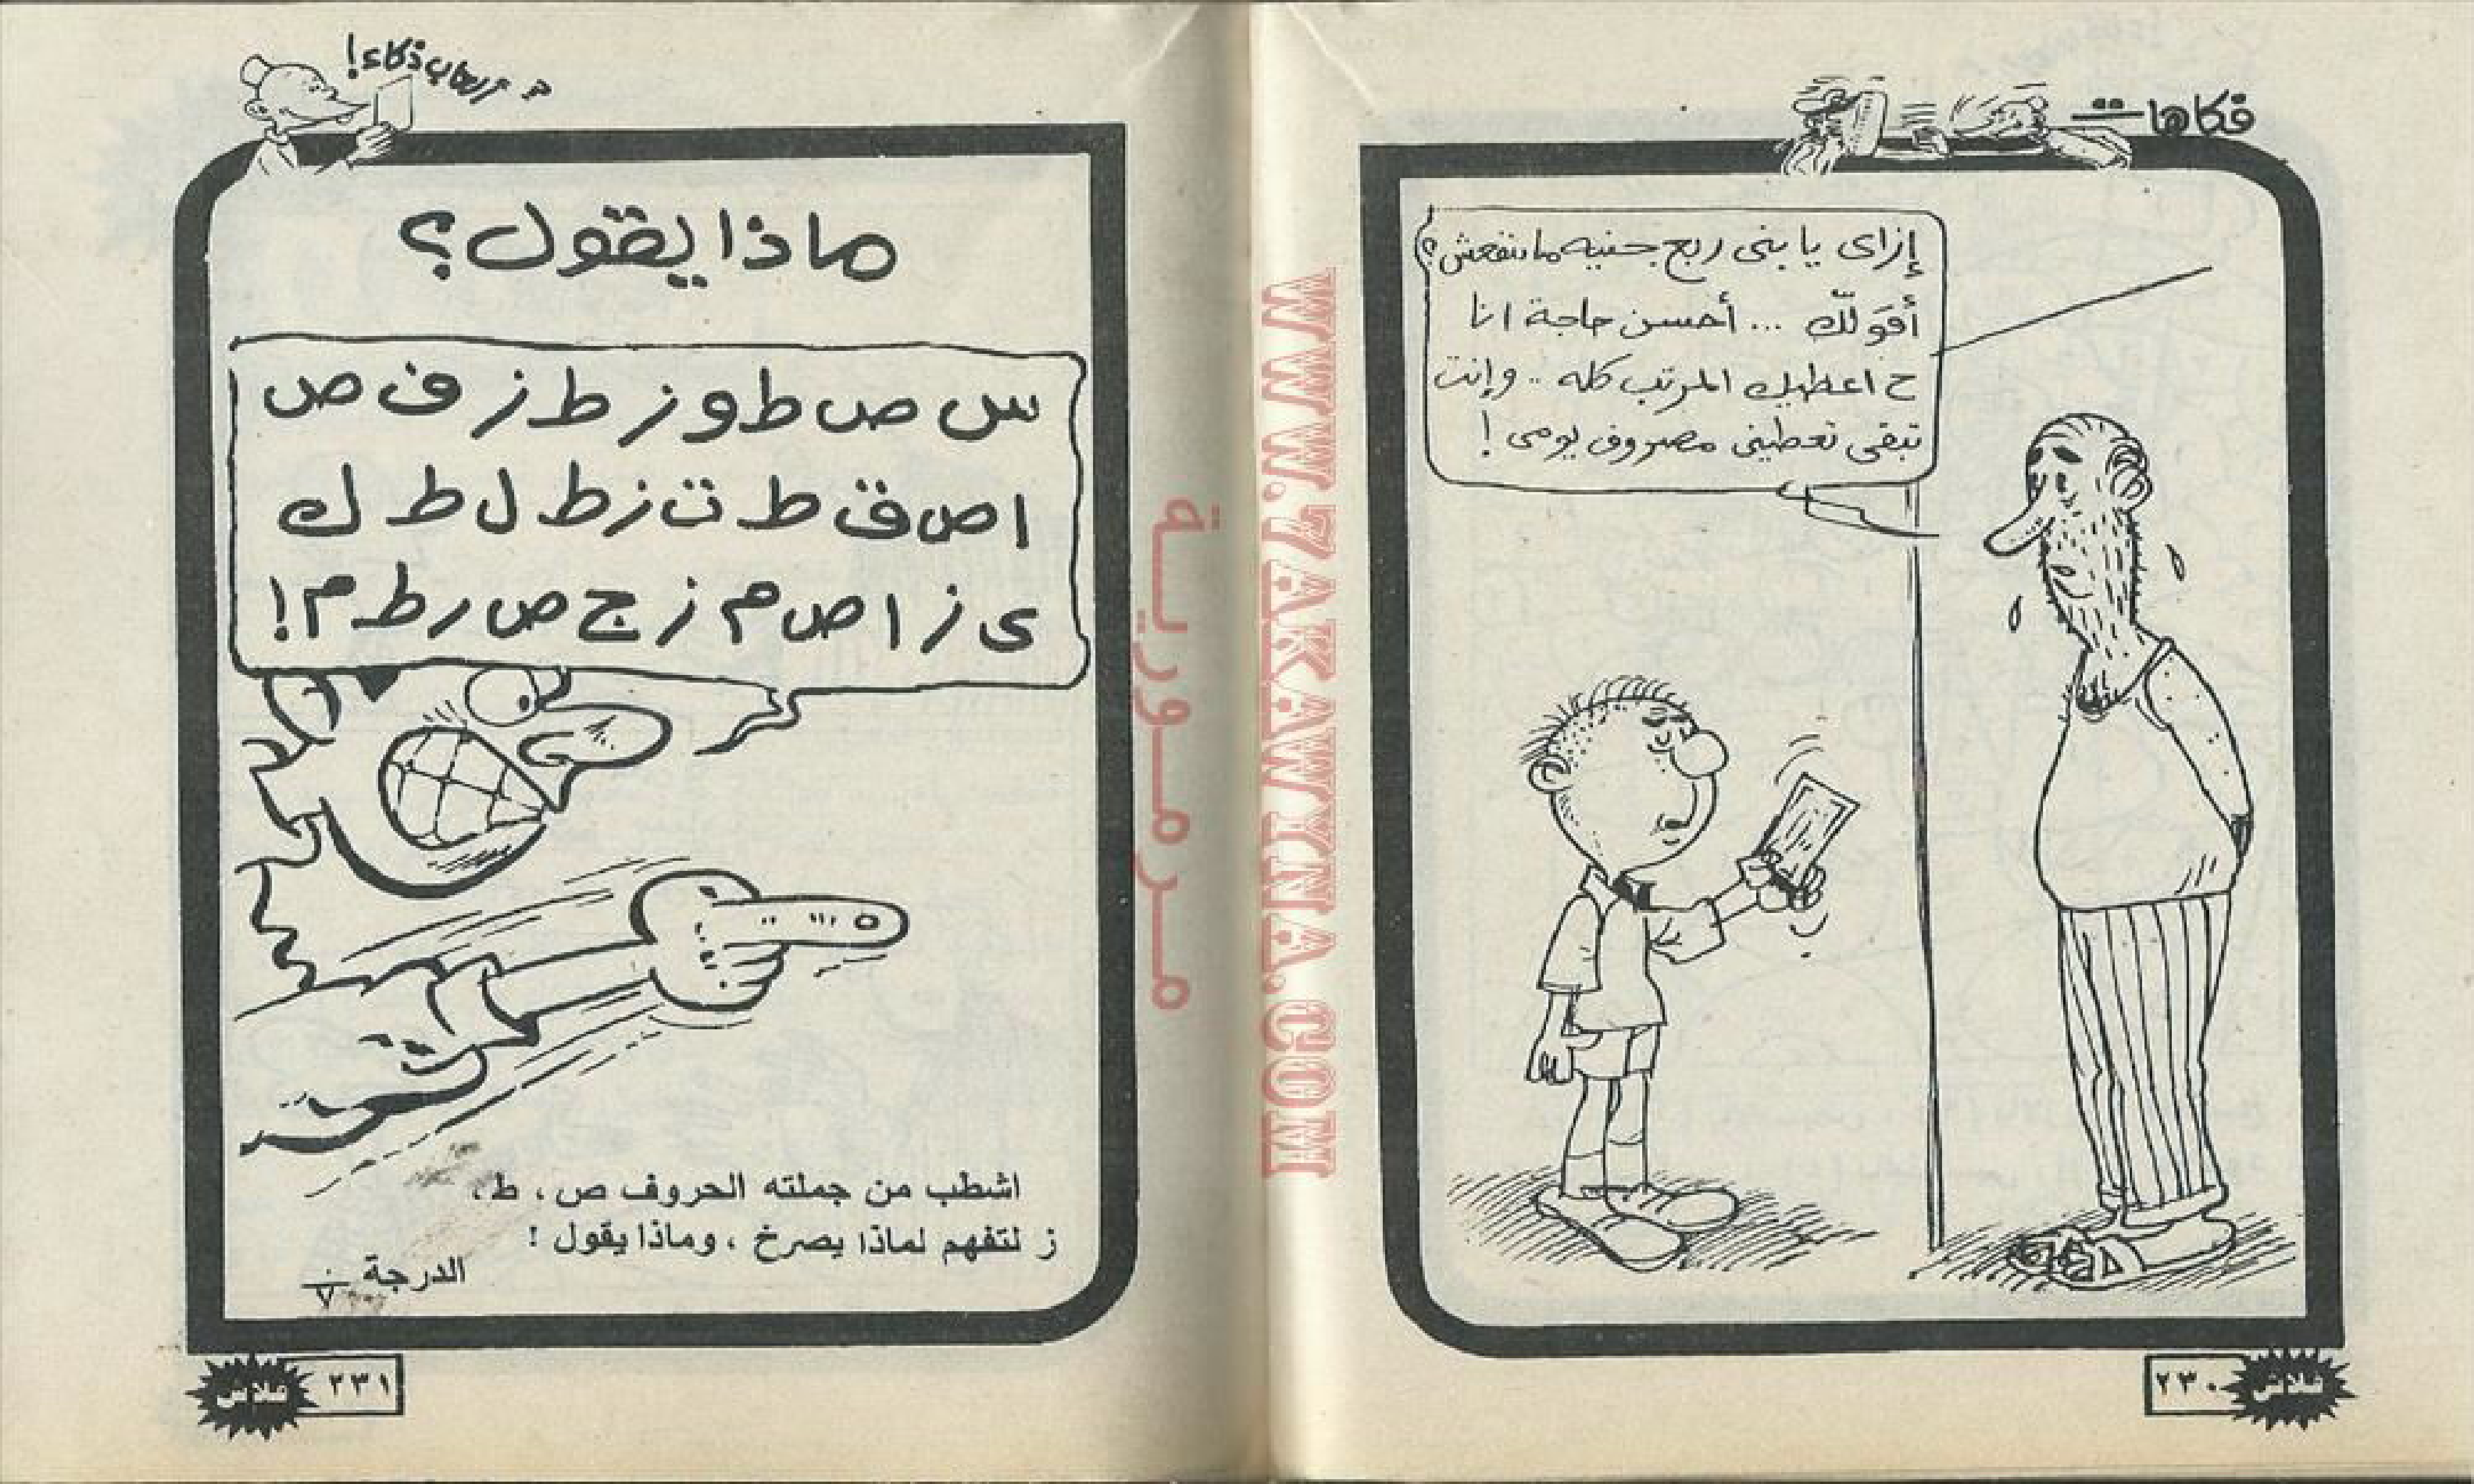 فكاهات
إزاى يا بنى ربع جنيه ماتنفعش؟
أقولك ... أحسن حاجة انا
ح اعطيك المرتب كله .. وإنت
تبقى تعطينى مصروف يومى !
٢٣٠
فلاش
WWW.7AKAWINA.COM
مرمورية
ألعاب ذكاء!
ماذا يقول؟
س ص ط و ز ط ز ف ص
ا ص ق ط ت ز ط ل ط ك
ى ز ا ص م ز ج ص ر ط م!
اشطب من جملته الحروف ص ، ط ،
ز لتفهم لماذا يصرخ ، وماذا يقول !
الدرجة ٠/٧
٢٣١
فلاش